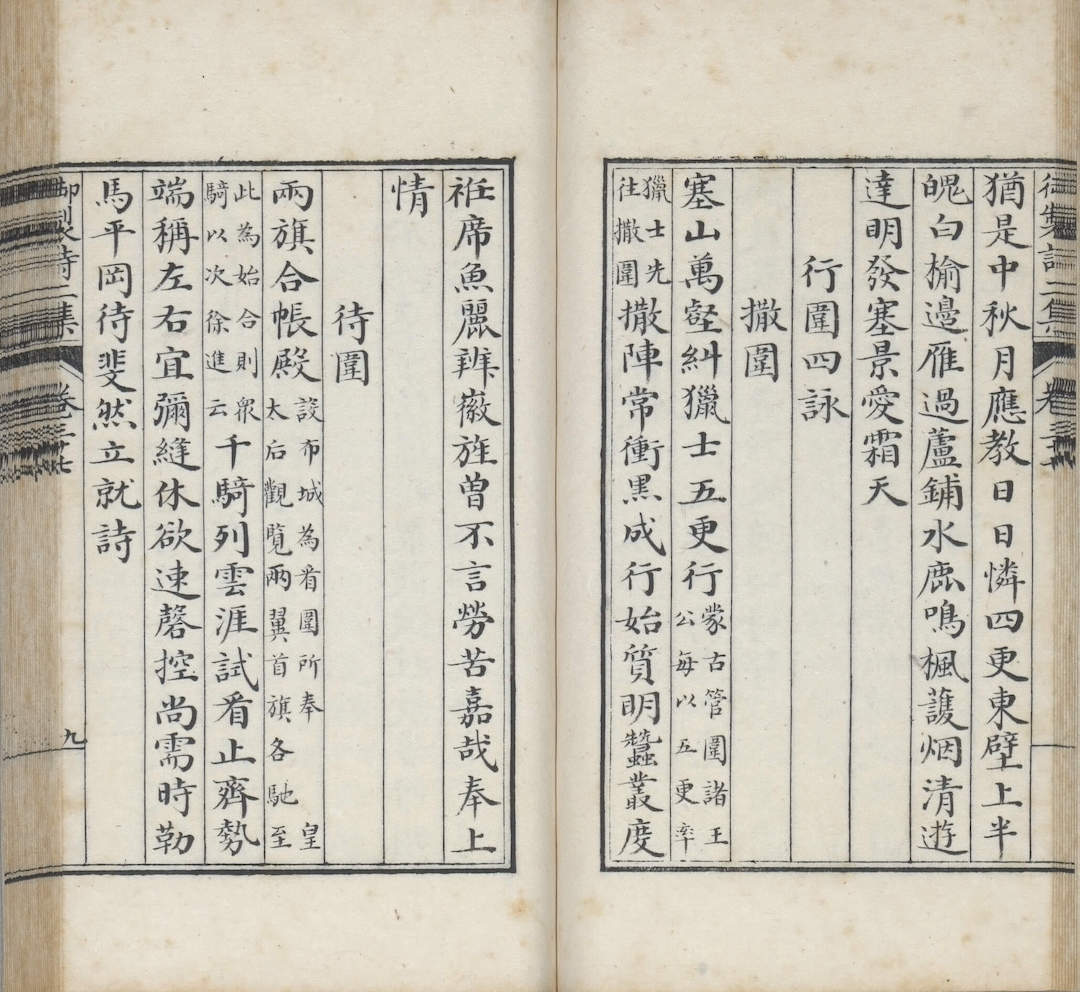 猶是中秋月應教日日憐四更東壁上半
魄白榆邊雁過蘆鋪水鹿鳴楓護烟清遊
達明發塞景愛霜天
行圍四詠
撒圍
塞山萬壑糾獵士五更行蒙古管圍諸王公每以五更率
獵士先往撒圍撒陣常衝黑成行始質明蠶叢度
袵席魚麗辨徽旌曾不言勞苦嘉哉奉上
情
待圍
兩旗合帳殿設布城為看圍所奉皇太后觀覽兩翼首旗各馳至
此為始合則衆騎以次徐進云千騎列雲涯試看止齊勢
端稱左右宜彌縫休欲速磬控尚需時勒
馬平岡待斐然立就詩
御製詩二集 卷三十七 九